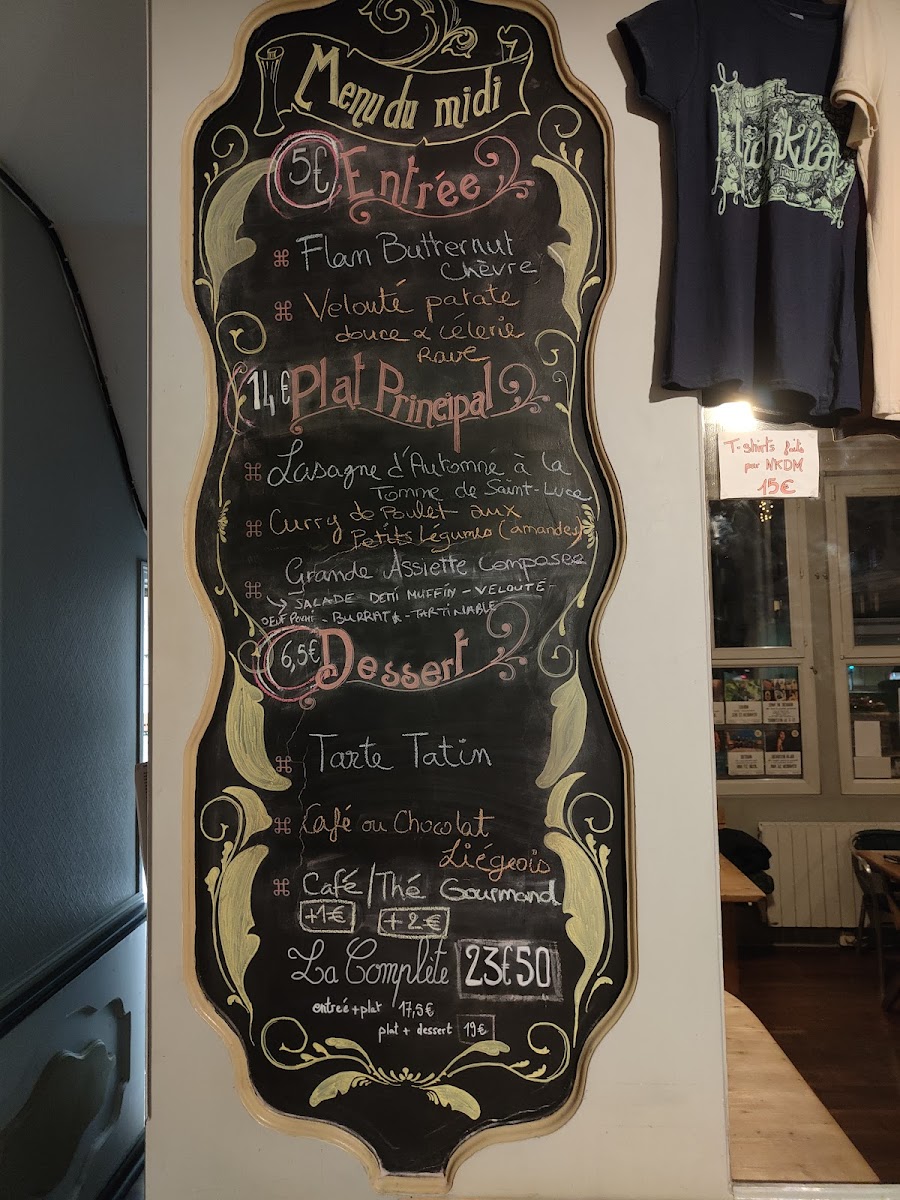 Menu du midi
5€ Entrée
⌘ Flan Butternut
Chèvre
⌘ Velouté patate
douce & Célerie
Rave
14€ Plat Principal
⌘ Lasagne d'Automne à la
Tomme de Saint-Luce
⌘ Curry de Poulet aux
Petits Légumes (amandes)
⌘ Grande Assiette Composée
↳ SALADE DEMI MUFFIN - VELOUTÉ -
OEUF POCHÉ - BURRATA - TARTINABLE
6,5€ Dessert
⌘ Tarte Tatin
⌘ Café ou Chocolat
Liégeois
⌘ Café/Thé Gourmand
+1€ +2€
La Complète 23€50
entreé+plat 17,5€
plat + dessert 19€
T-shirts faits
par NKDM
15€